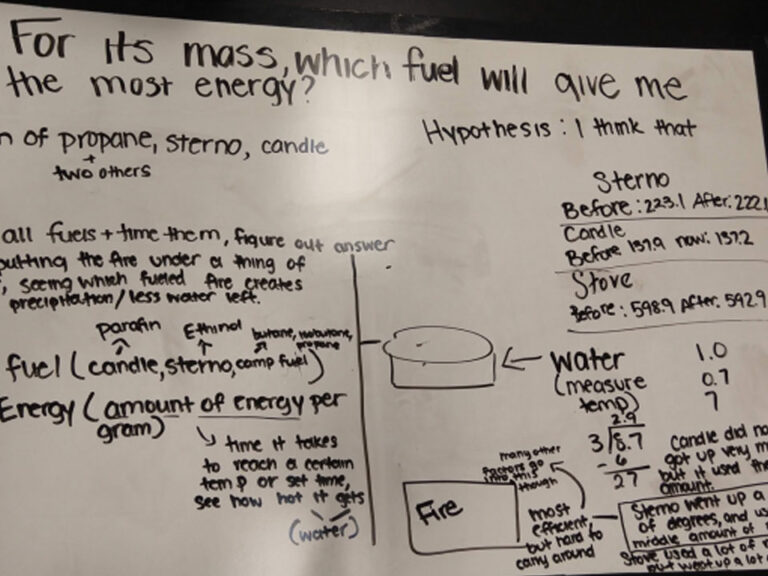 For its mass, which fuel will give me
the most energy?
n of propane, sterno, candle
+
two others
Hypothesis: I think that
Sterno
Before: 223.1 After: 222.1
Candle
Before 137.9 now: 137.2
Stove
Before: 598.9 After: 592.9
all fuels + time them, figure out answer
putting the fire under a thing of
, seeing which fueled fire creates
precipitation/less water left.
parafin Ethinol butane, isobutane,
propane
fuel (candle, sterno, camp fuel)
Energy (amount of energy per
gram)
time it takes
to reach a certain
temp or set time,
see how hot it gets
(water)
water
(measure
temp)
1.0
0.7
7
2.9
3/8.7
-6
27
many other
factors go
into this
though
Fire
most
efficient,
but hard to
carry around
Candle did no
got up very m
but it used the
amount.
Sterno went up a
of degrees, and us
middle amount of
Stove used a lot of
but went up a lot